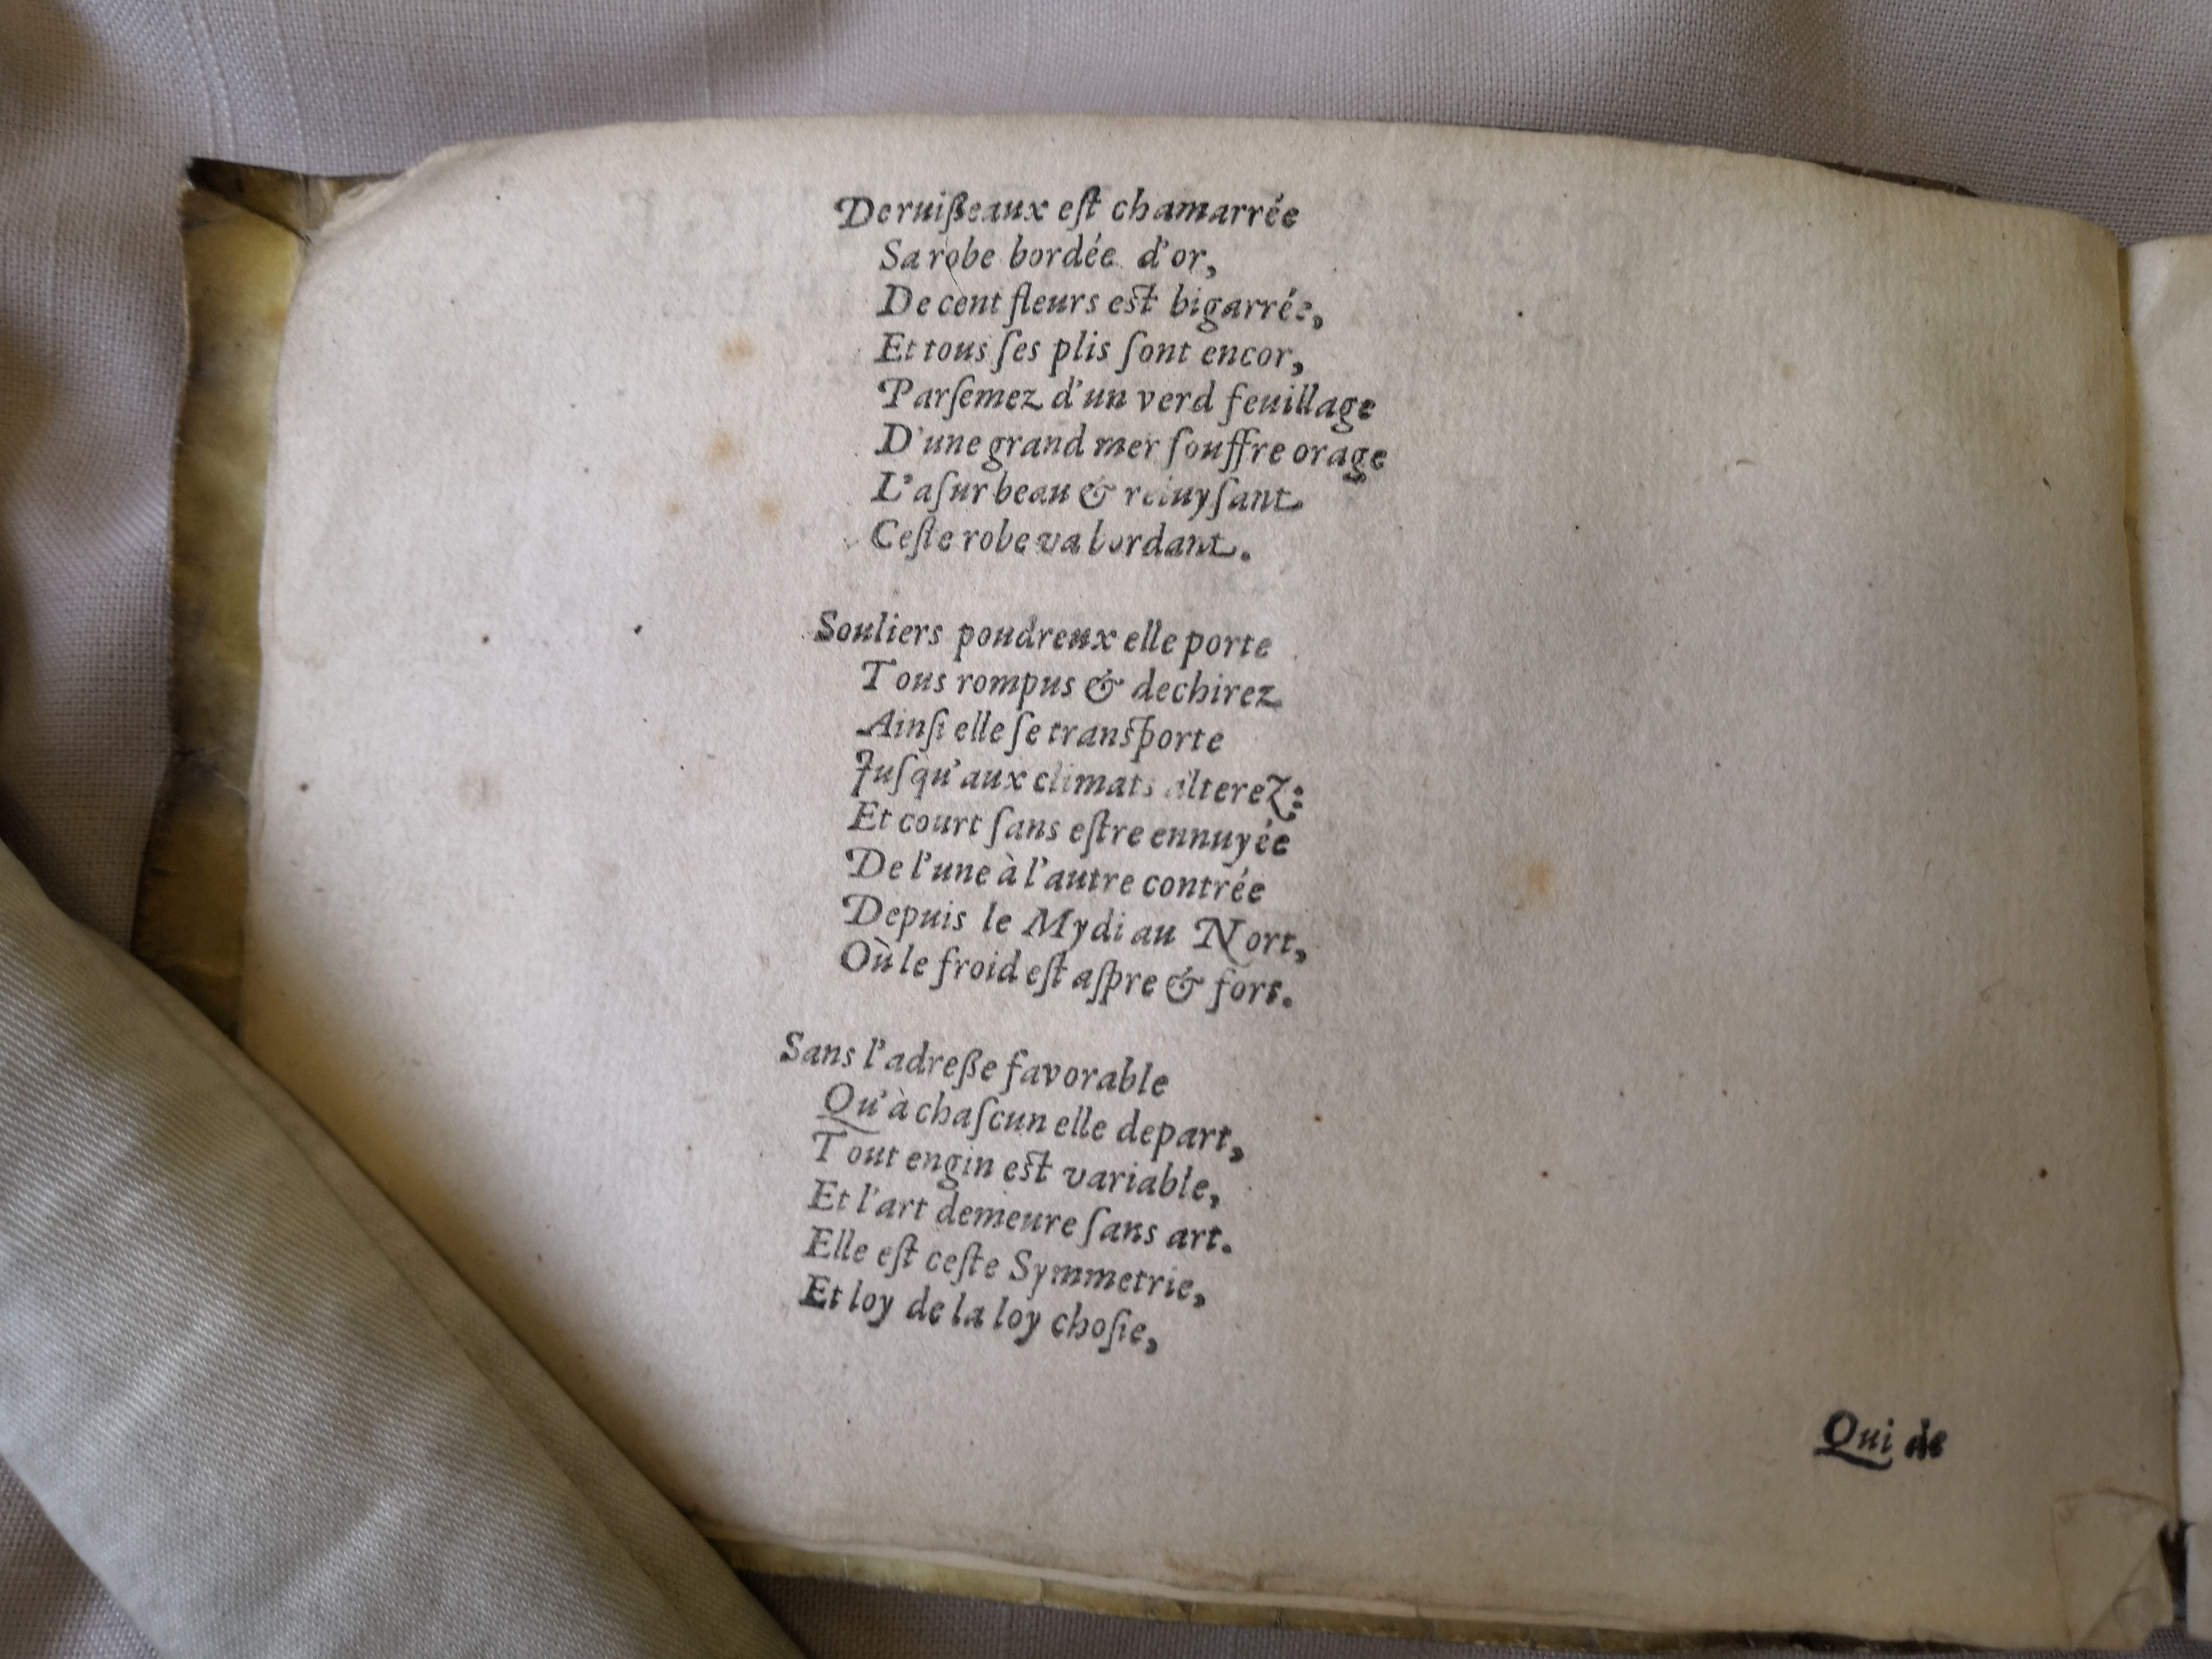 De ruißeaux eſt chamarrée
Sa robe bordée d'or,
De cent fleurs est bigarrée,
Et tous ſes plis ſont encor,
Parſemez d'un verd feuillage
D'une grand mer ſouffre orage
L'aſur beau & reluyſant
Ceſte robe va bordant.
Souliers poudreux elle porte
Tous rompus & dechirez
Ainſi elle ſe transporte
Juſqu'aux climats alterez:
Et court ſans eſtre ennuyée
De l'une à l'autre contrée
Depuis le Mydi au Nort,
Où le froid eſt aſpre & fort.
Sans l'adreße favorable
Qu'à chaſcun elle depart,
Tout engin est variable,
Et l'art demeure ſans art.
Elle eſt ceſte Symmetrie,
Et loy de la loy choſie,
Qui de